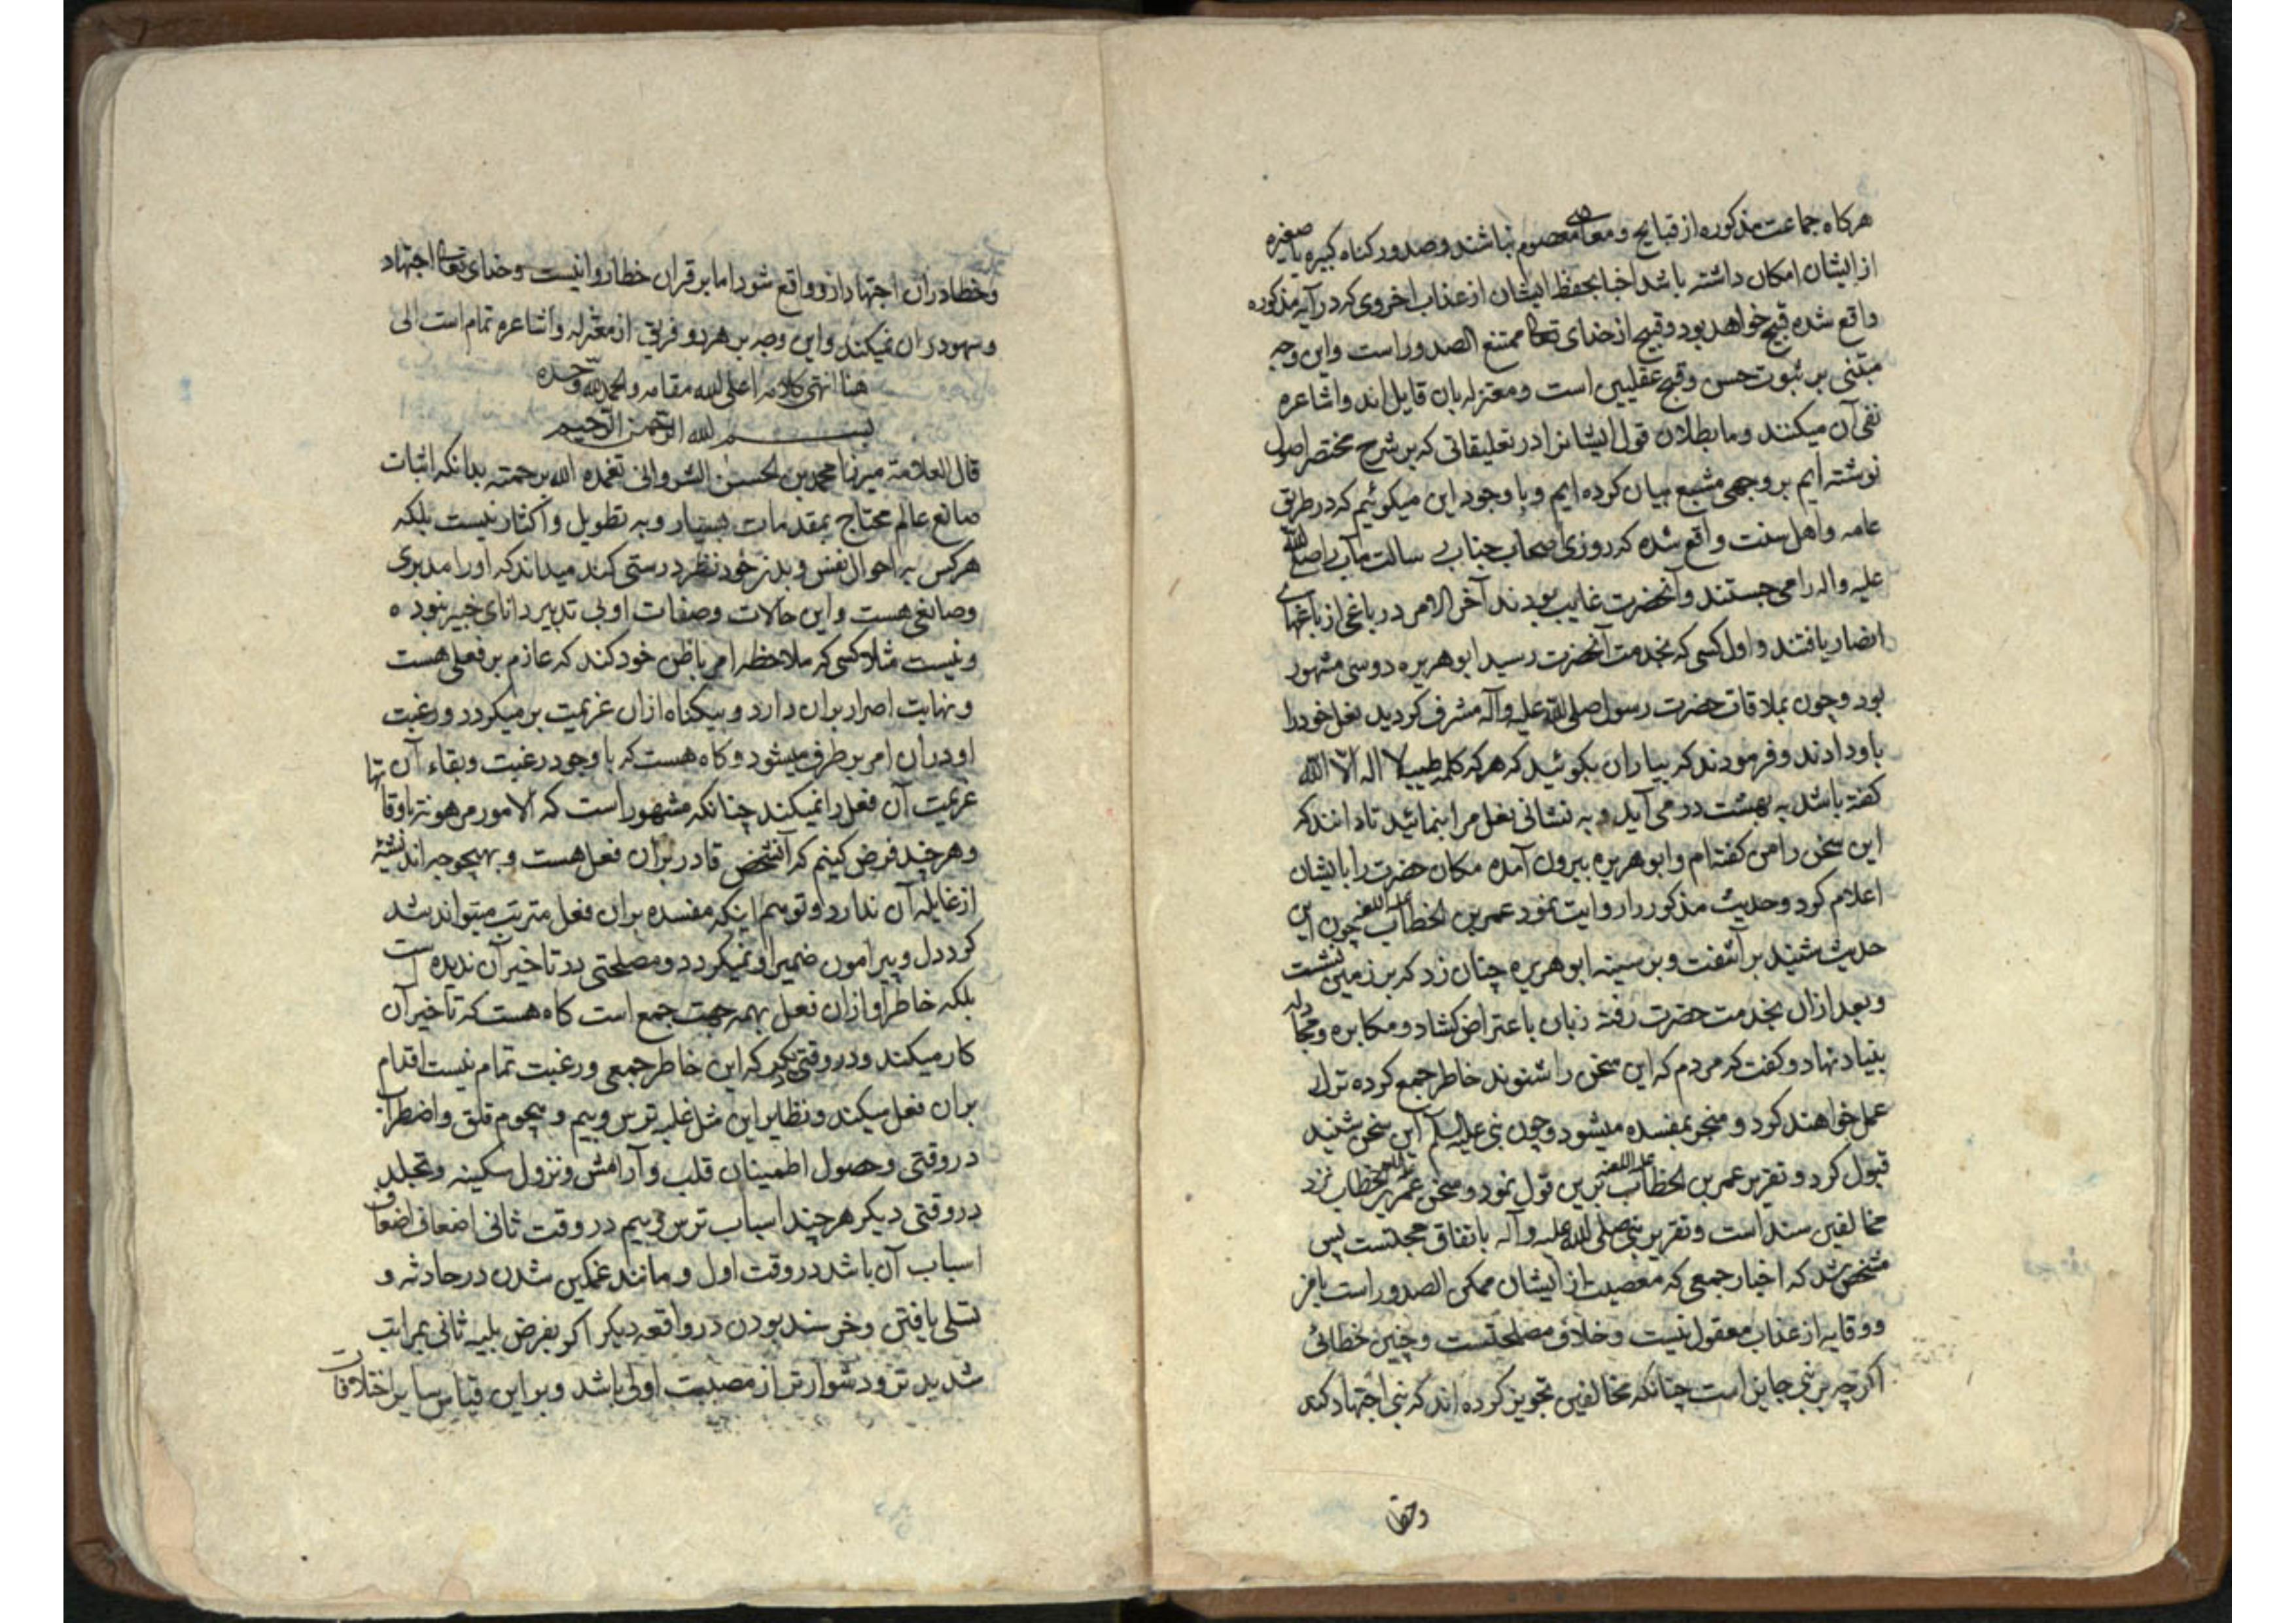 هرکاه جماعت مذکوره از قبایح و معاصی معصوم نباشند و صدور کناه کبیره یا صغیره
از ایشان امکان داشته باشد اخبار بحفظ ایشان از عذاب اخروی که در آیه مذکوره
واقع شده قبیح خواهد بود و قبیح از خدای تعالی ممتنع الصدور است و این وجه
مبتنی بر ثبوت حسن و قبح عقلیین است و معتزله بان قایل اند و اشاعره
نفی آن میکنند و ما بطلان قول ایشانرا در تعلیقاتی که بر شرح مختصر اصول
نوشته ایم بر وجهی مشبع بیان کرده ایم و با وجود این میکوئیم که در طریق
عامه و اهل سنت واقع شده که روزی اصحاب جناب رسالت مآب را صلی الله
علیه واله را می جستند و آنحضرت غایب بودند آخر الامر در باغی از باغهای
انصار یافتند و اول کسی که بخدمت آنحضرت رسید ابو هریره دوسی مشهور
بود و چون بملاقات حضرت رسول صلی الله علیه وآله مشرف کردید نعل خود را
باو دادند و فرمودند که بیاران بکوئید که هر که کلمه طیبه لا اله الا الله
کفته باشد به بهشت در می آید و به نشانی نعل مرا بنمائید تا دانند که
این سخن را من کفته ام و ابو هریره بیرون آمده مکان حضرت را بایشان
اعلام کرد و حدیث مذکور را روایت نمود عمر بن الخطاب علیه اللعنه چون این
حدیث شنید بر آشفت و بر سینه ابو هریره چنان زد که بر زمین نشست
و بعد از ان بخدمت حضرت رفته زبان باعتراض کشاد و مکابره و مجادله
بنیاد نهاد و کفت که مردم که این سخن را شنوند خاطر جمع کرده ترک
عمل خواهند کرد و منجر بمفسده میشود و چون نبی علیه السلم این سخن شنید
قبول کرد و تقریر عمر بن الخطاب علیه اللعنه برین قول نمود و سخن عمر بن الخطاب نزد
مخالفین سند است و تقریر نبی صلی الله علیه وآله باتفاق حجتست پس
مشخص شد که اخبار جمعی که معصیت از ایشان ممکن الصدور است
و وقایه از عذاب معقول نیست و خلاف مصلحتست و چنین خطائی
اکرچه بر نبی جایز است چنانکه مخالفین تجویز کرده اند که نبی اجتهاد کند
وخطا
وخطا در ان اجتهاد از و واقع شود اما بر قران خطا روا نیست و خدای تعالی اجتهاد
و سهو در ان نمیکند و این وجه بر هر دو فریق از معتزله و اشاعره تمام است الی
هنا انتهی کلامه اعلی الله مقامه والحمد لله وحده
بسم الله الرحمن الرحیم
قال العلامة میرزا محمد بن الحسن الشروانی تغمده الله برحمته بدانکه اثبات
صانع عالم محتاج بمقدمات بسیار و به تطویل و اکثار نیست بلکه
هر کس به احوال نفس و بدن خود نظر درستی کند میداند که او را مدبری
و صانعی هست و این حالات و صفات او بی تدبیر دانای خبیر نبوده
و نیست مثلا کسی که ملاحظه امر باطن خود کند که عازم بر فعلی هست
و نهایت اصرار بران دارد و بیکناه از ان عزیمت بر میکردد و رغبت
او دران امر بر طرف میشود و کاه هست که با وجود رغبت و بقاء آن
عزیمت آن فعل را نمیکند چنانکه مشهور است که الامور مرهونة باوقاتها
و هر چند فرض کنیم که آنشخص قادر بران فعل هست و بهیچوجه اندیشه
از غایله آن ندارد و توهم اینکه مفسده بران فعل مترتب میتواند شد
کرد دل و پیرامون ضمیر او نمیکردد و مصلحتی در تاخیر آن ندیده است
بلکه خاطر او ازان فعل بهمه جهت جمع است کاه هست که تاخیر آن
کار میکند و در وقتی دیکر که این خاطر جمعی و رغبت تمام نیست اقدام
بران فعل میکند و نظایر این مثل غلبه ترس و بیم و هجوم قلق و اضطراب
در وقتی و حصول اطمینان قلب و آرامش و نزول سکینه و تجلد
در وقتی دیکر هر چند اسباب ترس و بیم در وقت ثانی اضعاف اضعاف
اسباب آن باشد در وقت اول و مانند غمکین شدن در حادثه و
تسلی یافتن و خرسند بودن در واقعه دیکر اکر بفرض بلیه ثانی بمراتب
شدید تر و دشوارتر از مصیبت اولی باشد و بر این قیاس سایر اختلافات